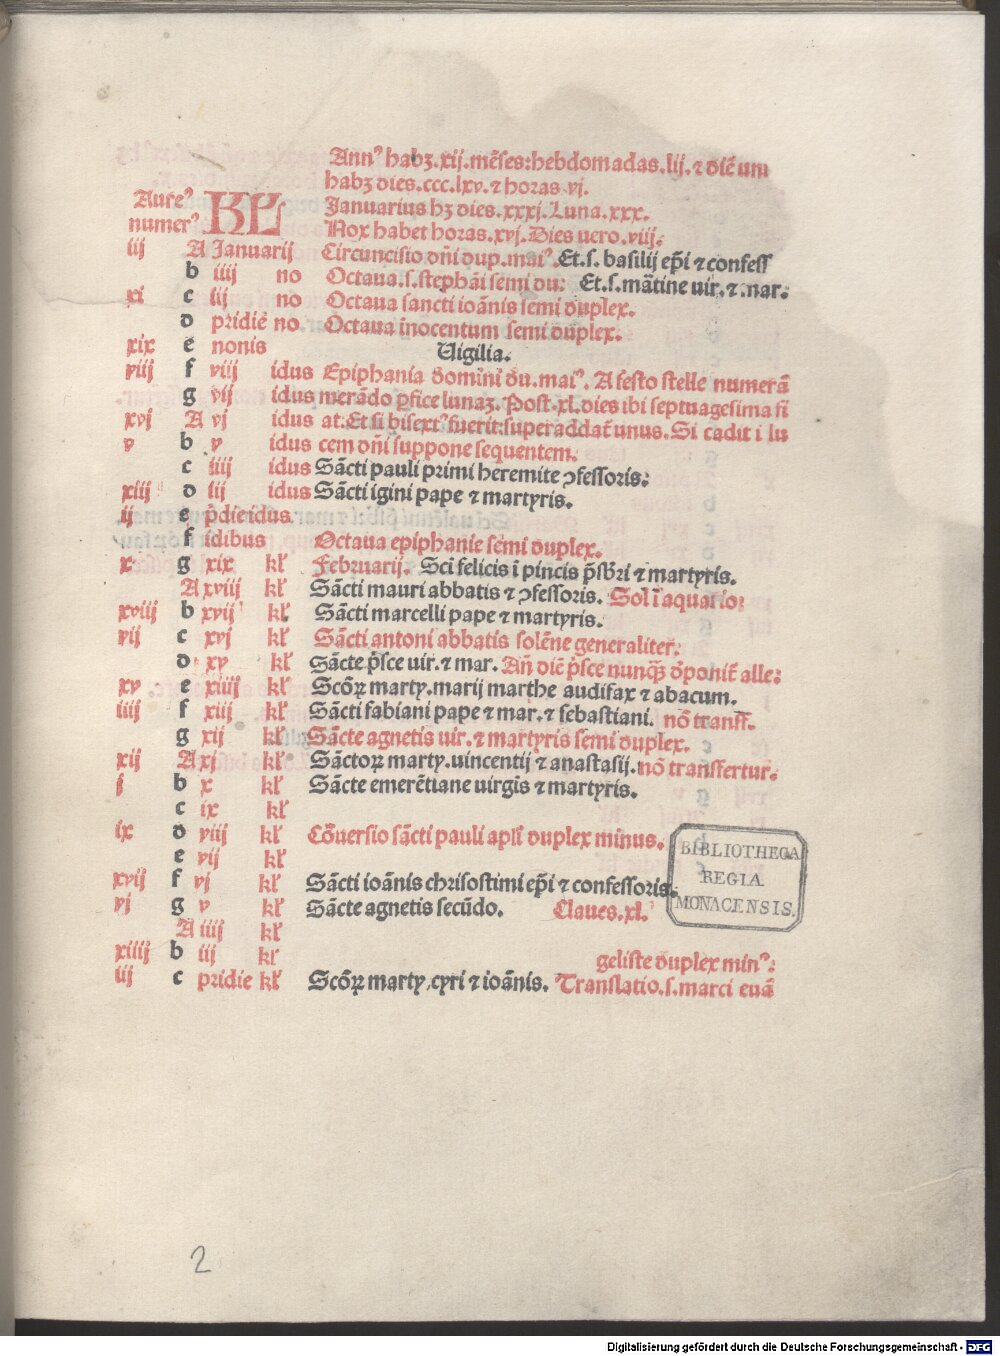 Annꝰ habꝫ.xij.mēses:hebdomadas.lij.⁊ diē um
habꝫ dies.ccc.lxv.⁊ horas vj.
Aureꝰ KL Januarius hꝫ dies.xxxj.Luna.xxx.
numerꝰ Nox habet horas.xvj.Dies uero.viij.
iij A Januarij Circuncisio dñi dup.maiꝰ. Et.s. basilij ep̄i ⁊ confess
b iiij no Octaua.s.stephāi semi du. Et.s.mātine uir.⁊.mar.
xi c iij no Octaua sancti ioānis semi duplex.
d pridie no. Octaua inocentum semi duplex.
xix e nonis Uigilia.
viij f viij idus Epiphania domini du.maiꝰ. A festo stelle numerā
g vij idus merādo ꝑfice lunaꝫ. Post.xl.dies ibi septuagesima fi
xvj A vj idus at.Et si bisextꝰ fuerit:superaddat̄ unus. Si cadit i lu
v b v idus cem dñi suppone sequentem.
c iiij idus Sācti pauli primi heremite ꝯfessoris:
xiij d iij idus Sācti igini pape ⁊ martyris.
ij e p̄die idus
f idibus Octaua epiphanie semi duplex.
x g xix kl̄ Februarij. Sci felicis ī pincis p̄sb̄ri ⁊ martyris.
A xviij kl̄ Sācti mauri abbatis ⁊ ꝯfessoris. Sol ī aquario:
xviij b xvij kl̄ Sācti marcelli pape ⁊ martyris.
vij c xvj kl̄ Sācti antoni abbatis solēne generaliter.
d xv kl̄ Sācte p̄sce uir.⁊ mar. Añ diē p̄sce nunqꝫ d̄ponit̄ alle:
xv e xiiij kl̄ Scōꝝ marty.marij marthe audifax ⁊ abacum.
iiij f xiij kl̄ Sācti fabiani pape ⁊ mar.⁊ sebastiani. nō transf̄.
g xij kl̄ Sācte agnetis uir.⁊ martyris semi duplex.
xij A xj kl̄ Sāctoꝝ marty.uincentij ⁊ anastasij.nō transfertur.
j b x kl̄ Sācte emerētiane uirgīs ⁊ martyris.
c ix kl̄
ix d viij kl̄ Cōuersio sācti pauli apl̄i duplex minus.
e vij kl̄
xvij f vj kl̄ Sācti ioānis chrisostimi ep̄i ⁊ confessoris.
vj g v kl̄ Sācte agnetis secūdo. Claues.xl.
A iiij kl̄
xiiij b iij kl̄ geliste duplex minꝰ:
iij c pridie kl̄ Scōꝝ marty.cyri ⁊ ioānis. Translatio.s.marci euā
BIBLIOTHECA
REGIA
MONACENSIS.
2
Digitalisierung gefördert durch die Deutsche Forschungsgemeinschaft - DFG